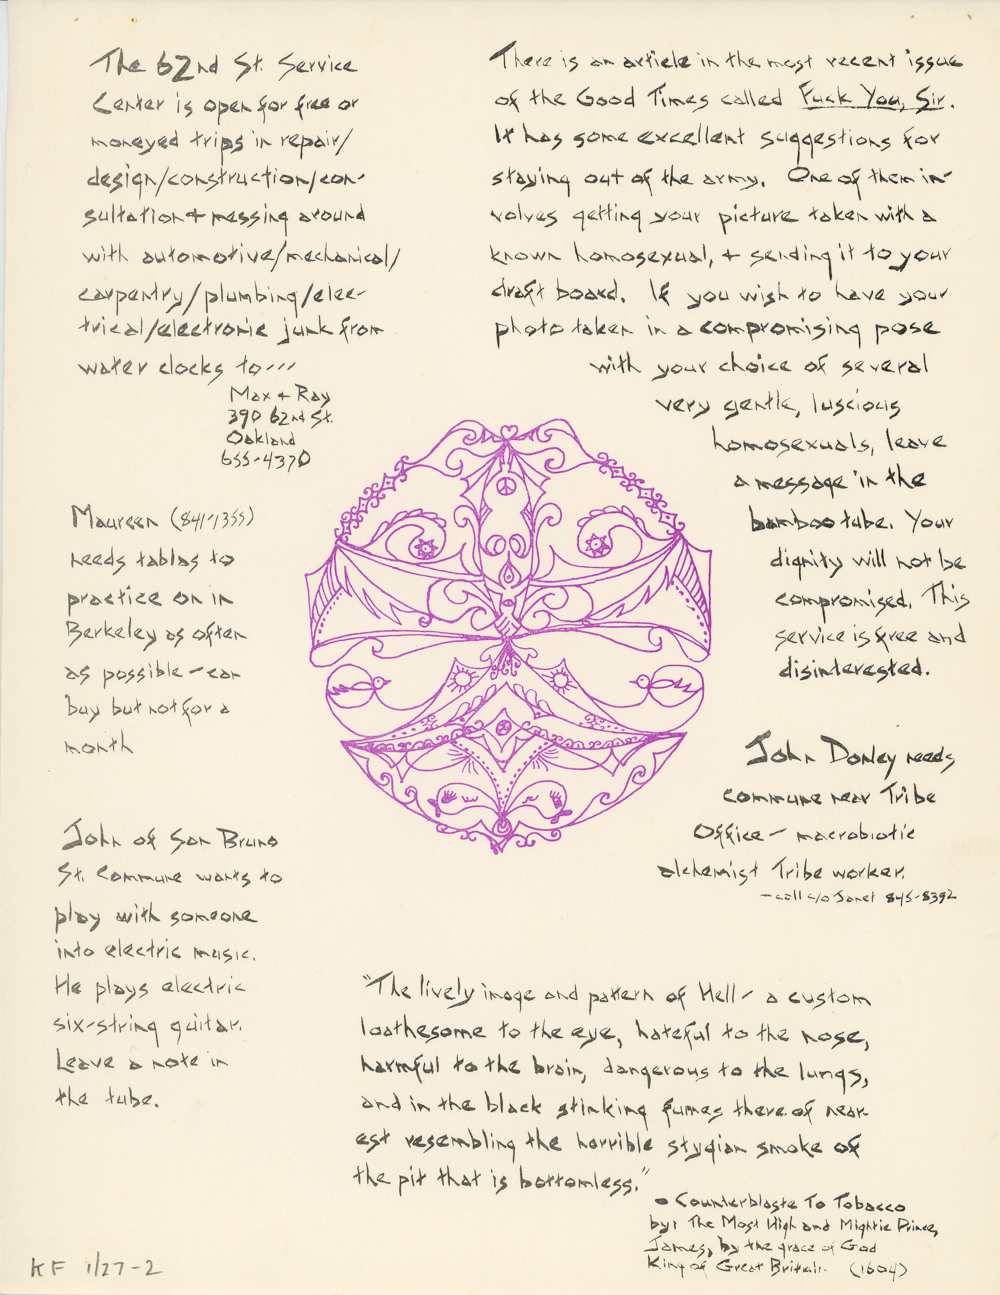 The 62nd St. Service
Center is open for free or
moneyed trips in repair/
design/construction/con-
sultation + messing around
with automotive/mechanical/
carpentry/plumbing/elec-
trical/electronic junk from
water clocks to---
Max + Ray
390 62nd St.
Oakland
655-4370
There is an article in the most recent issue
of the Good Times called Fuck You, Sir.
It has some excellent suggestions for
staying out of the army. One of them in-
volves getting your picture taken with a
known homosexual, + sending it to your
draft board. If you wish to have your
photo taken in a compromising pose
with your choice of several
very gentle, luscious
homosexuals, leave
a message in the
bamboo tube. Your
dignity will not be
compromised. This
service is free and
disinterested.
Maureen (841-1355)
needs tablas to
practice on in
Berkeley as often
as possible - can
buy but not for a
month
John Donley needs
commune near Tribe
Office - macrobiotic
alchemist Tribe worker.
- call c/o Janet 845-8392
John of San Bruno
St. Commune wants to
play with someone
into electric music.
He plays electric
six-string guitar.
Leave a note in
the tube.
"The lively image and pattern of Hell - a custom
loathesome to the eye, hateful to the nose,
harmful to the brain, dangerous to the lungs,
and in the black stinking fumes there of near-
est resembling the horrible stygian smoke of
the pit that is bottomless."
Counterblaste To Tobacco
by: The Most High and Mightie Prince,
James, by the grace of God
King of Great Britain (1604)
KF 1/27-2